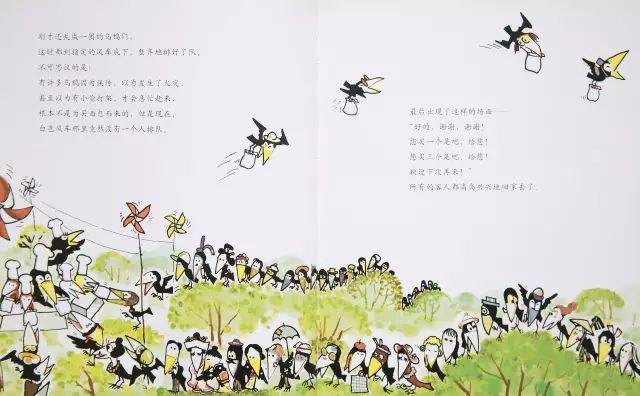 刚才还乱成一团的乌鸦们，
这时都到指定的风车底下，整齐地排好了队。
不可思议的是，
有许多乌鸦因为误传，以为发生了火灾，
甚至以为有小偷打架，才会急忙赶来，
根本不是为买面包而来的，但是现在，
白色风车那里竟然没有一个人排队。
最后出现了这样的场面——
“好的，谢谢，谢谢！
您买一个是吧，给您！
您买三个是吧，给您！
欢迎下次再来！”
所有的客人都高高兴兴地回家去了。